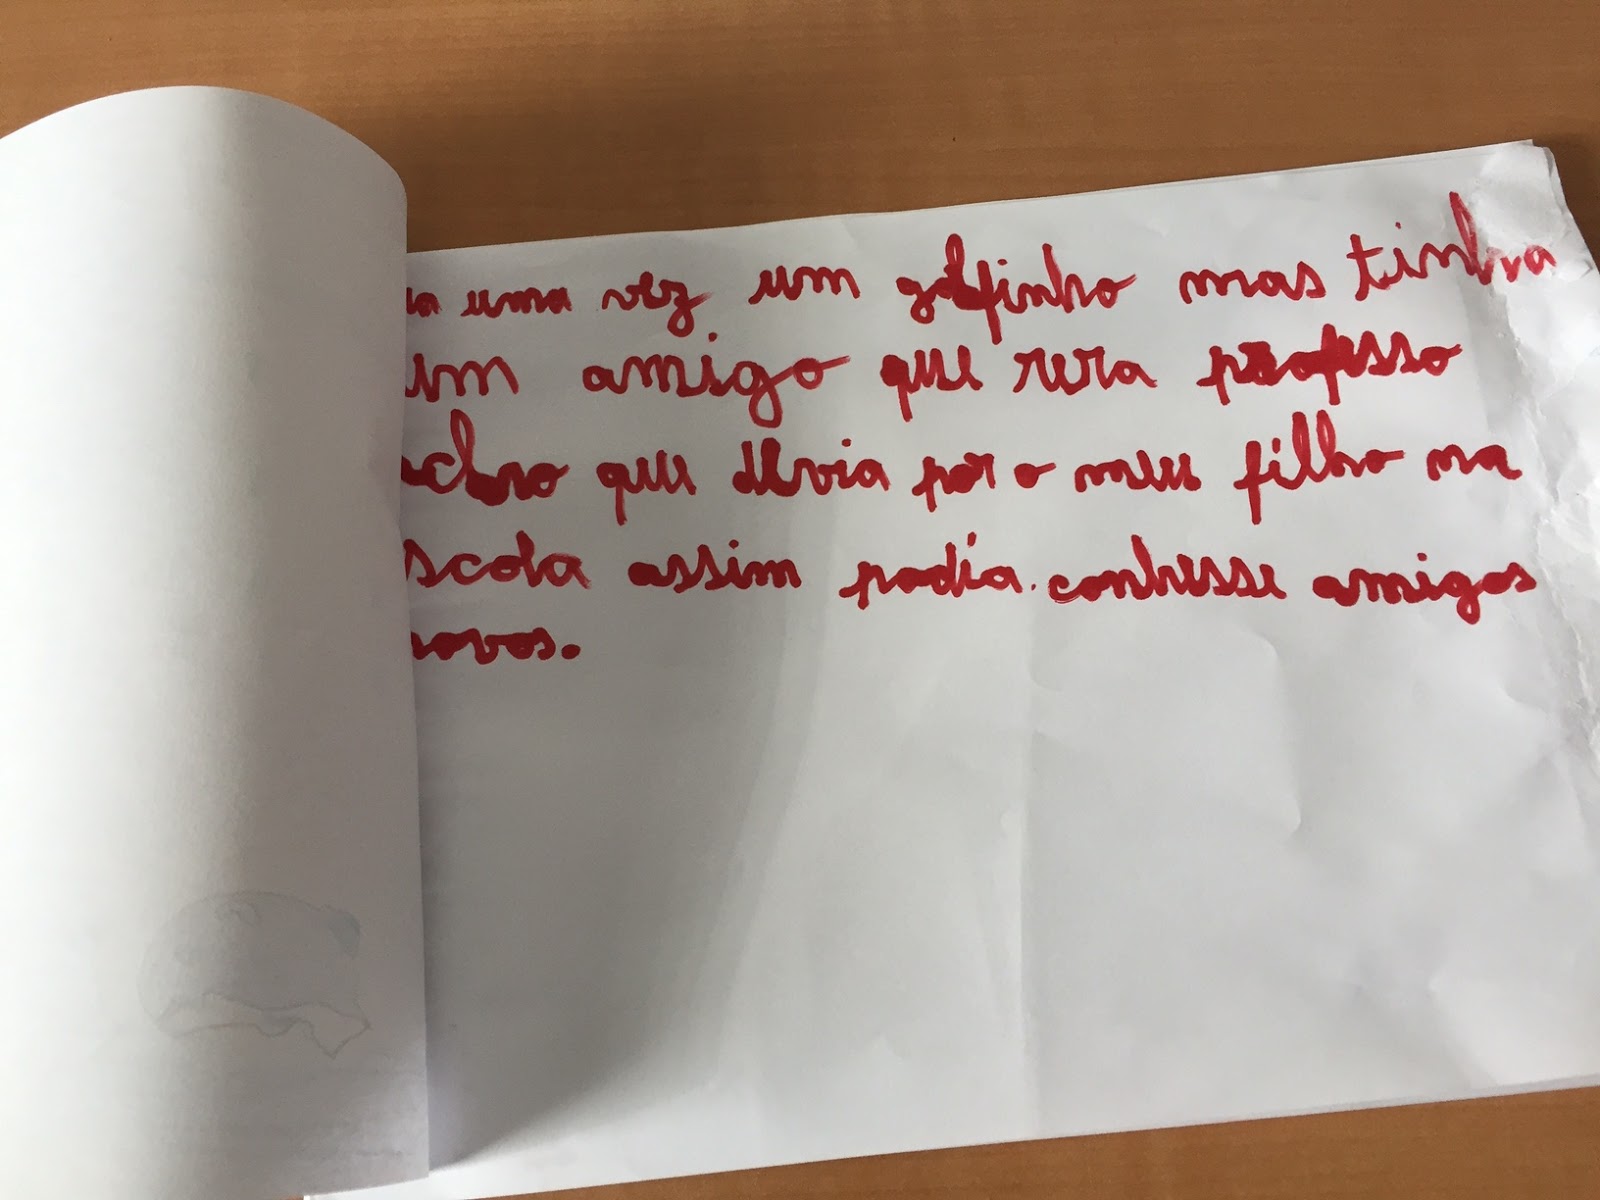 ra uma vez um golfinho mas tinha
um amigo que rera professo
acho que devia por o meu filho na
scola assim podia conhesse amigos
novos.